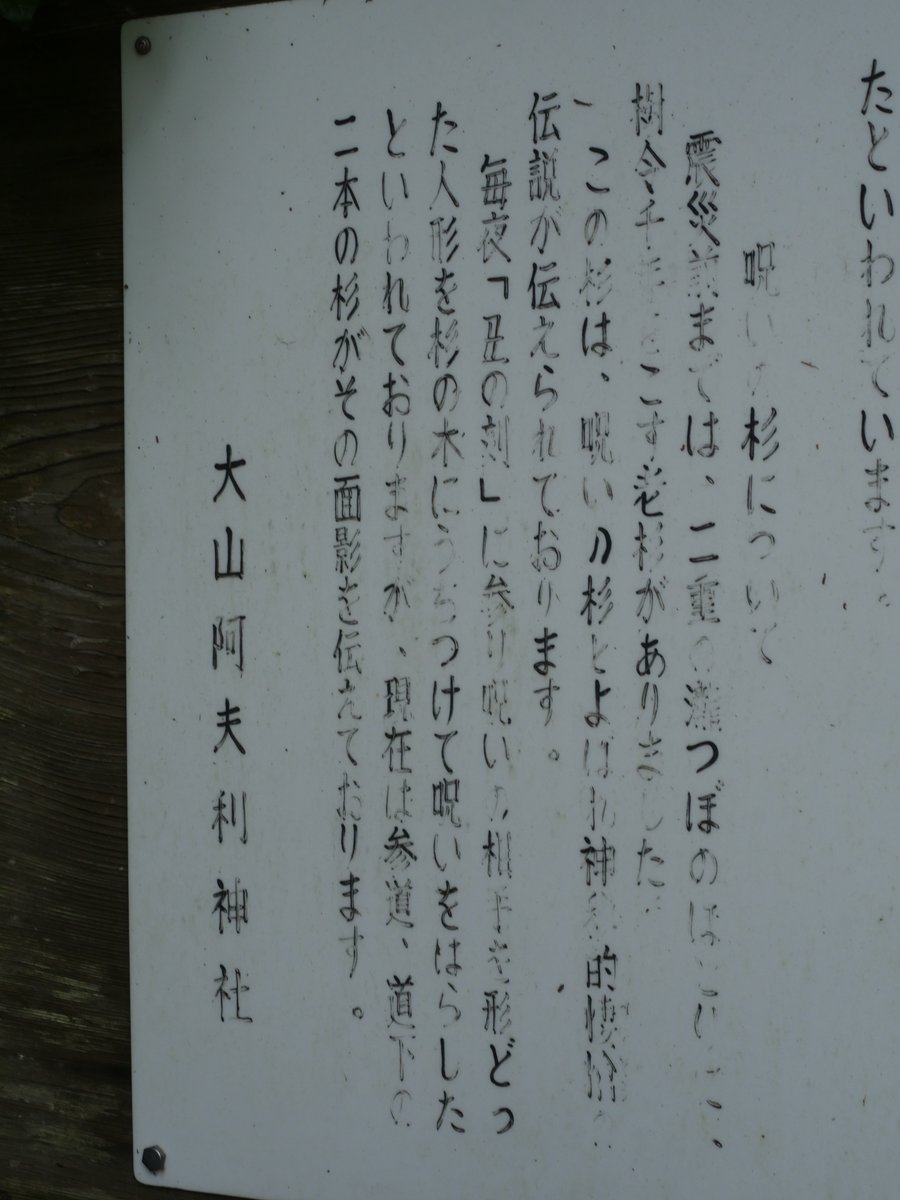 たといわれています。
呪いの杉について
震災前までは、二重の滝つぼのほとりに、
樹令千年をこす老杉がありました
この杉は、呪いの杉とよばれ神秘的
伝説が伝えられております。
毎夜「丑の刻」に参り呪いの相手を形どっ
た人形を杉の木にうちつけて呪いをはらした
といわれておりますが、現在は参道、道下の
二本の杉がその面影を伝えております。
大山阿夫利神社